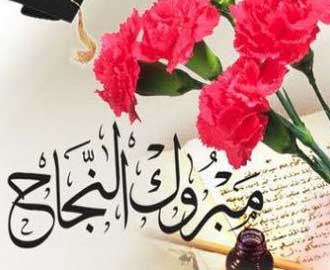 مَبْرُوك النَّجَاح